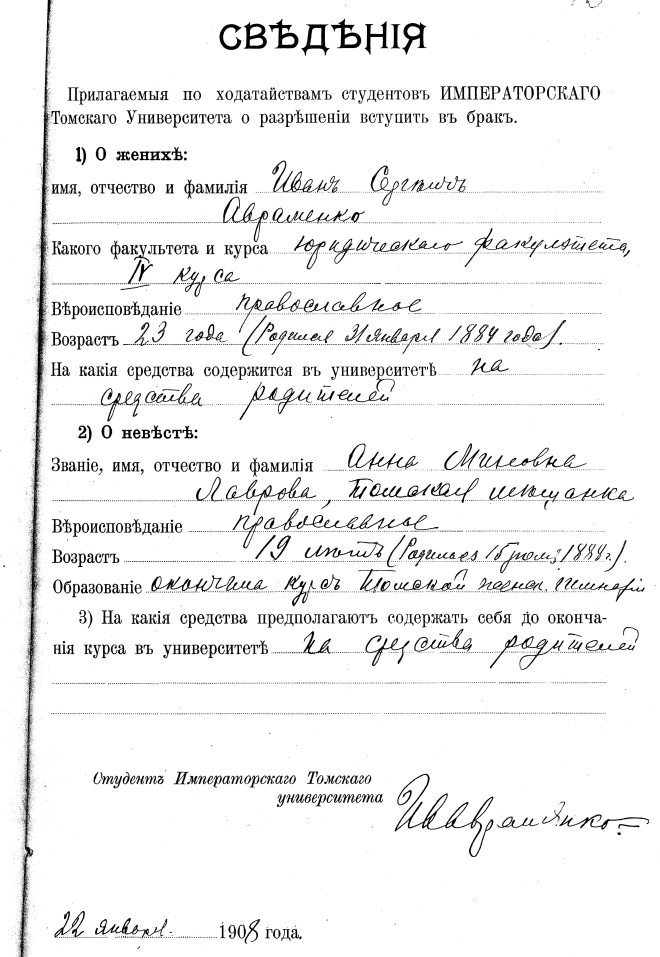 СВѢДѢНІЯ
Прилагаемыя по ходатайствамъ студентовъ ИМПЕРАТОРСКАГО
Томскаго Университета о разрѣшеніи вступить въ бракъ.
1) О женихѣ:
имя, отчество и фамилія Иванъ
Авраменко
Какого факультета и курса юридическаго факультета,
IV курса
Вѣроисповѣданіе православное
Возрастъ 23 года (Родился 31 января 1884 года).
На какія средства содержится въ университетѣ на
средства родителей
2) О невѣстѣ:
Званіе, имя, отчество и фамилія Анна
Лаврова, Томская мѣщанка
Вѣроисповѣданіе православное
Возрастъ 19 лѣтъ (Родилась 15
Образованіе окончила курсъ Томской женск. гимназіи
3) На какія средства предполагаютъ содержать себя до оконча-
нія курса въ университетѣ на средства родителей
Студентъ Императорскаго Томскаго
университета ИАвраменко
22 января 1908 года.